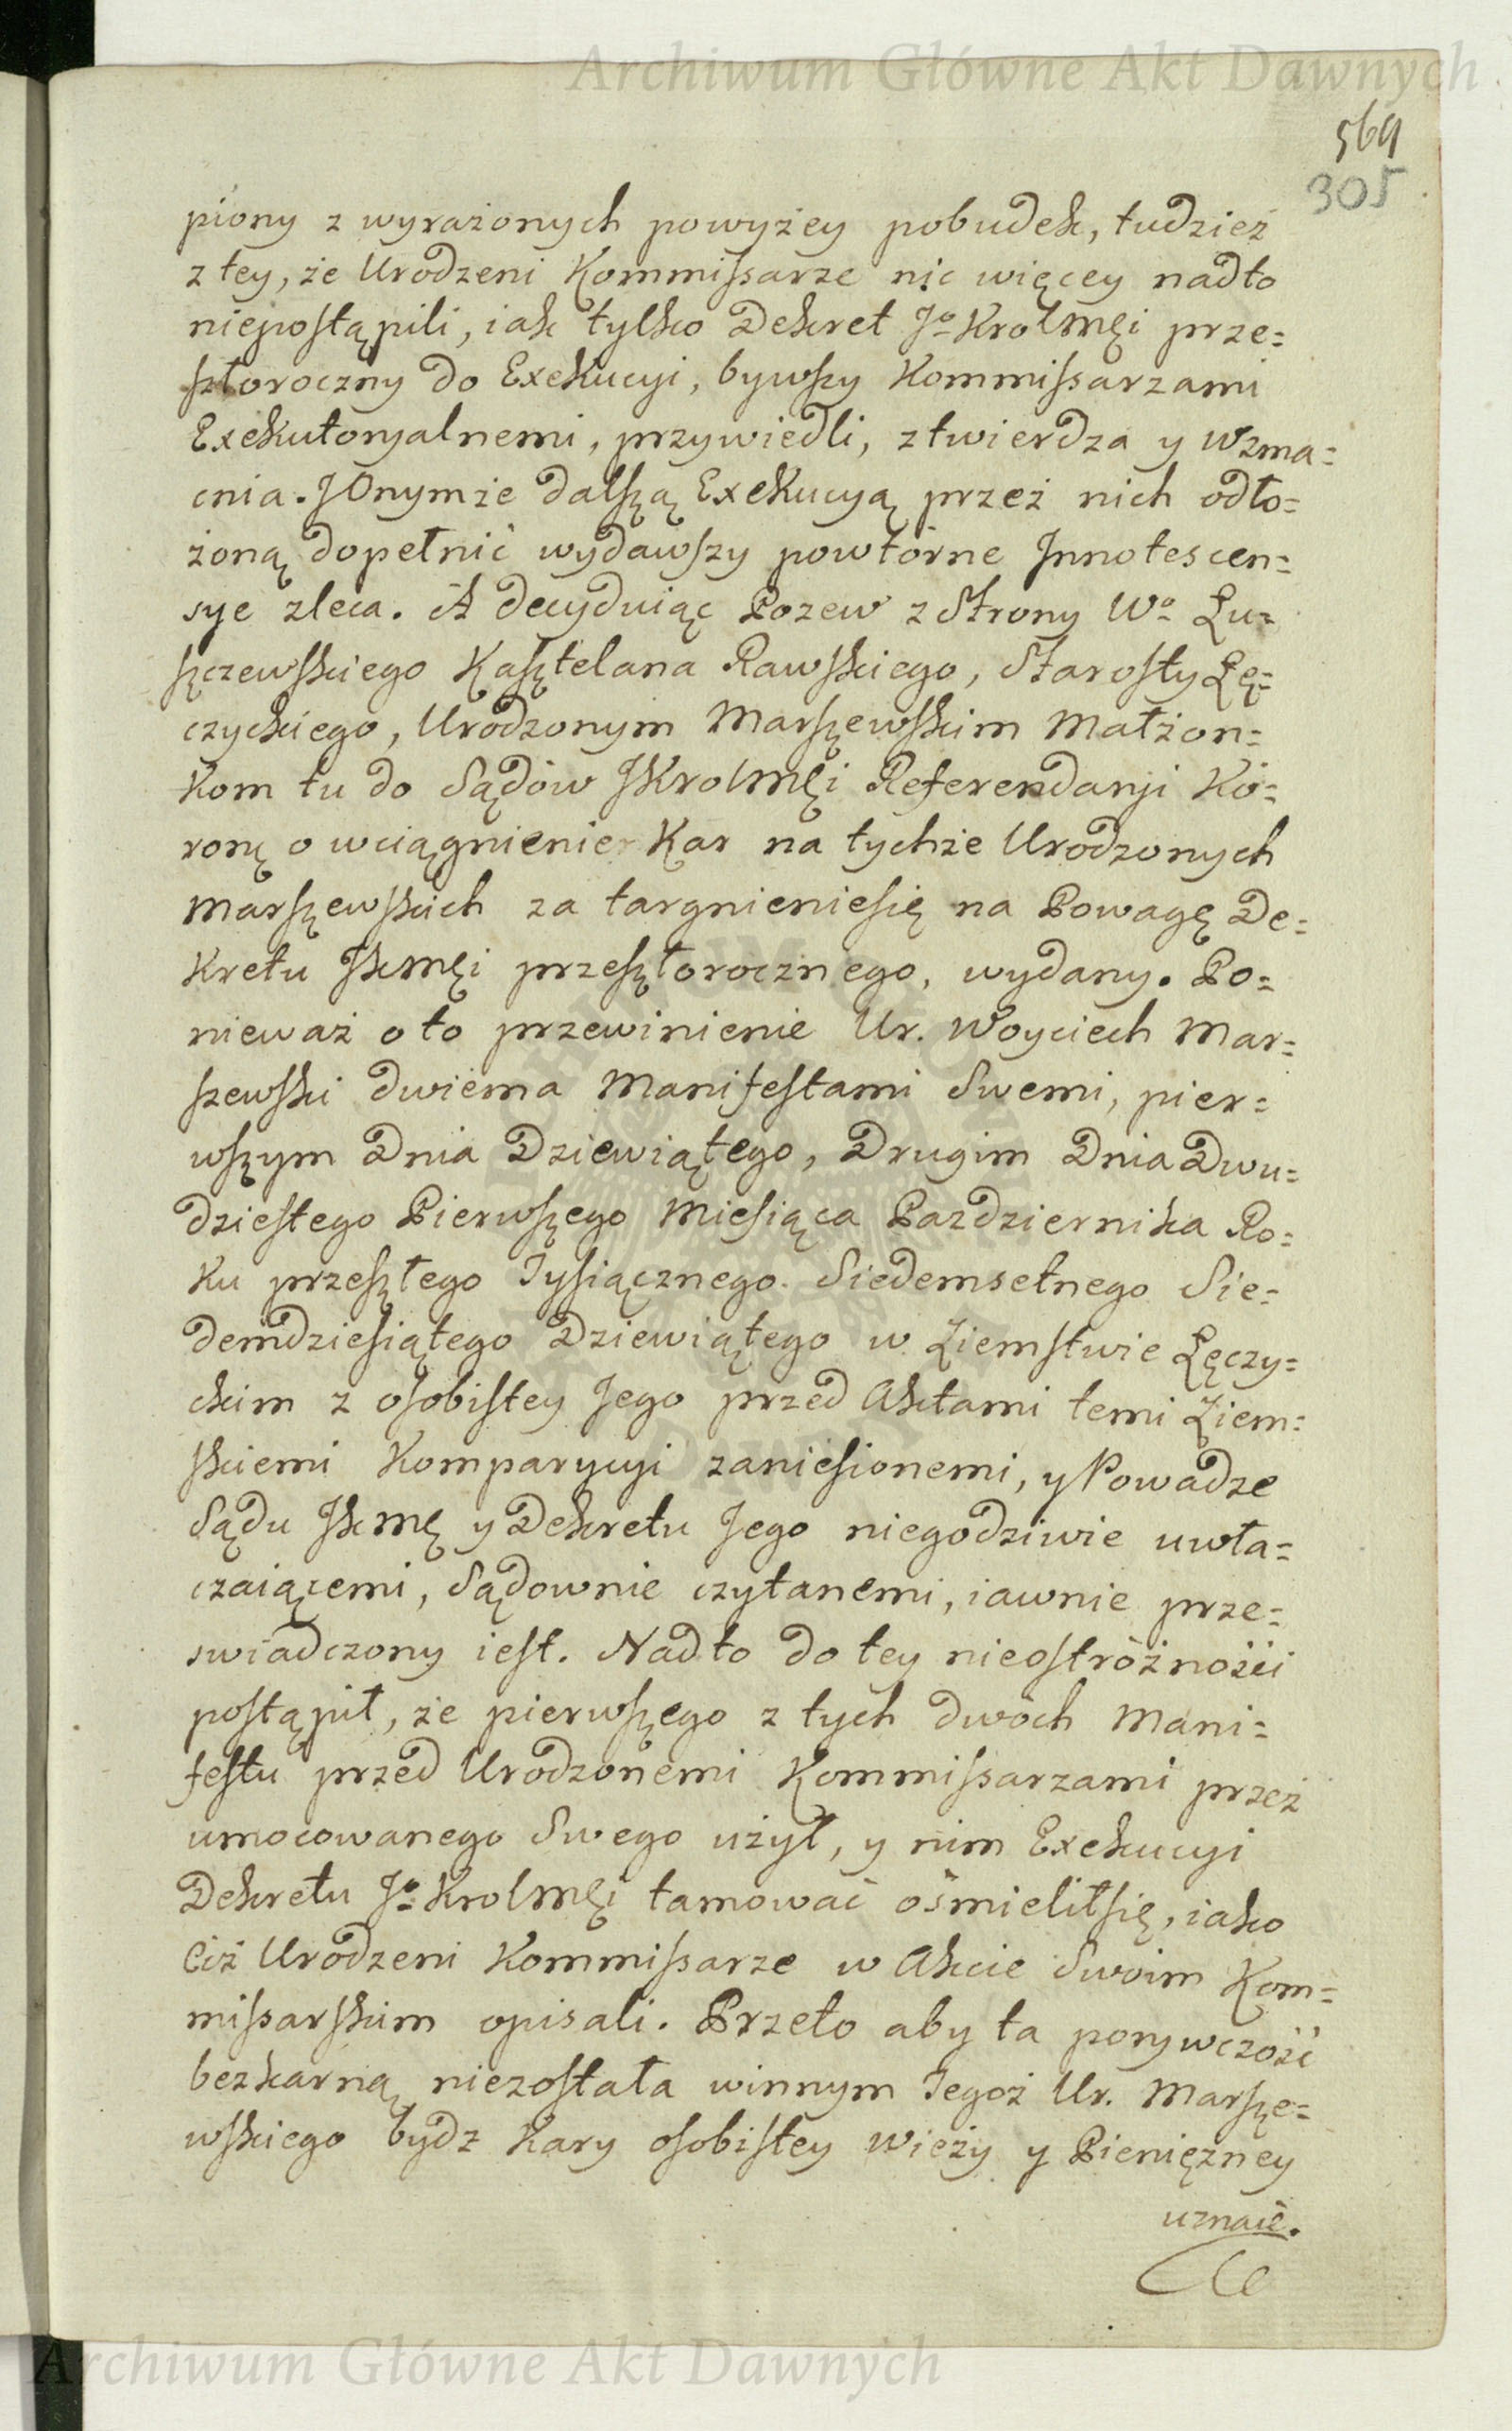 Archiwum Główne Akt Dawnych
569
305
piony z wyrażonych powyżey pobudek, tudzież
z tey, że Urodzeni Kommissarze nic więcey nadto
niepostąpili, iak tylko Dekret Jo Krolmęi prze=
szłoroczny do Exekucyi, bywszy Kommissarzami
Exekutoryalnemi, przywiedli, ztwierdza y wzma=
cnia. J Onymże dalszą Exekucyą przeż nich odło=
żoną dopełnić wydawszy powtórne Jnnotescen=
sye zleca. A decyduiąc Pozew z Strony Wo Łu=
szczewskiego Kasztelana Rawskiego, Starosty Łę=
czyckiego, Urodzonym Marszewskim Małżon=
kom tu do Sądów JKrolmęi Referendaryi Ko=
ronę o wciągnienie Kar na tychże Urodzonych
Marszewskich za targnieniesię na Powagę De=
kretu Jkmęi przeszłorocznego, wydany. Po=
nieważ o to przewinienie Ur. Woyciech Mar=
szewski dwiema Manifestami Swemi, pier=
wszym Dnia Dziewiątego, Drugim Dnia Dwu=
dziestego Pierwszego Miesiąca Pazdziernika Ro=
ku przeszłego Tysiącznego Siedemsetnego Sie=
demdziesiątego Dziewiątego w Ziemstwie Łęczy=
ckim z osobistey Jego przed Aktami temi Ziem=
skiemi Komparycyi zaniesionemi, y Powadze
Sądu Jkmę y Dekretu Jego niegodziwie uwła=
czaiącemi, Sądownie czytanemi, iawnie prze=
swiadczony iest. Nadto do tey nieostróżnośći
postąpił, że pierwszego z tych dwóch Mani=
festu przed Urodzonemi Kommissarzami przeż
umocowanego Swego użył, y nim Exekucyi
Dekretu Jo Krolmęi tamować ośmieliłsię, iako
Ciż Urodzeni Kommissarze w Akcie Swoim Kom=
missarskim opisali. Przeto aby ta porywczość
bezkarną niezostała winnym Tegoż Ur. Marsze=
wskiego bydz Kary osobistey Wieży y Pieniężney
uznaie.
Archiwum Główne Akt Dawnych